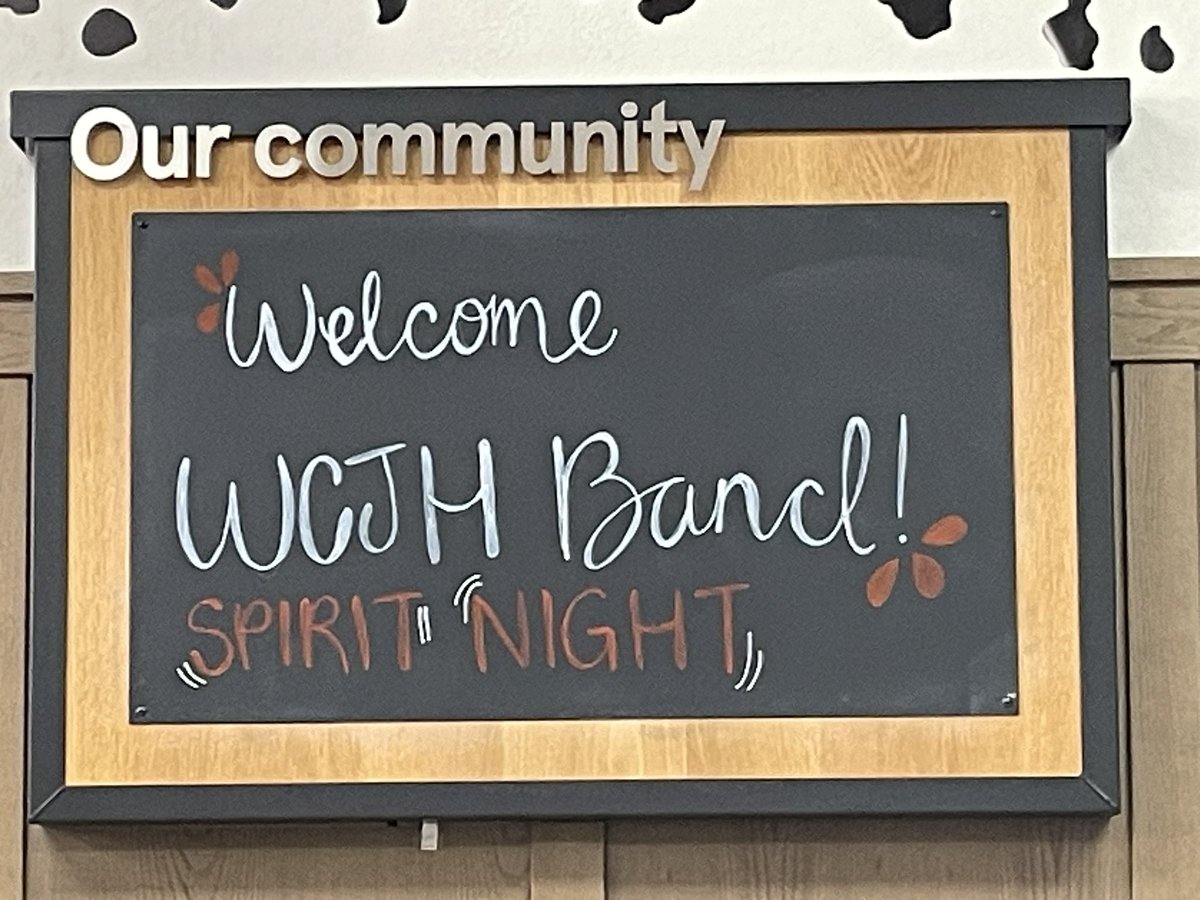 Our community
Welcome
WCJH Band!
SPIRIT NIGHT